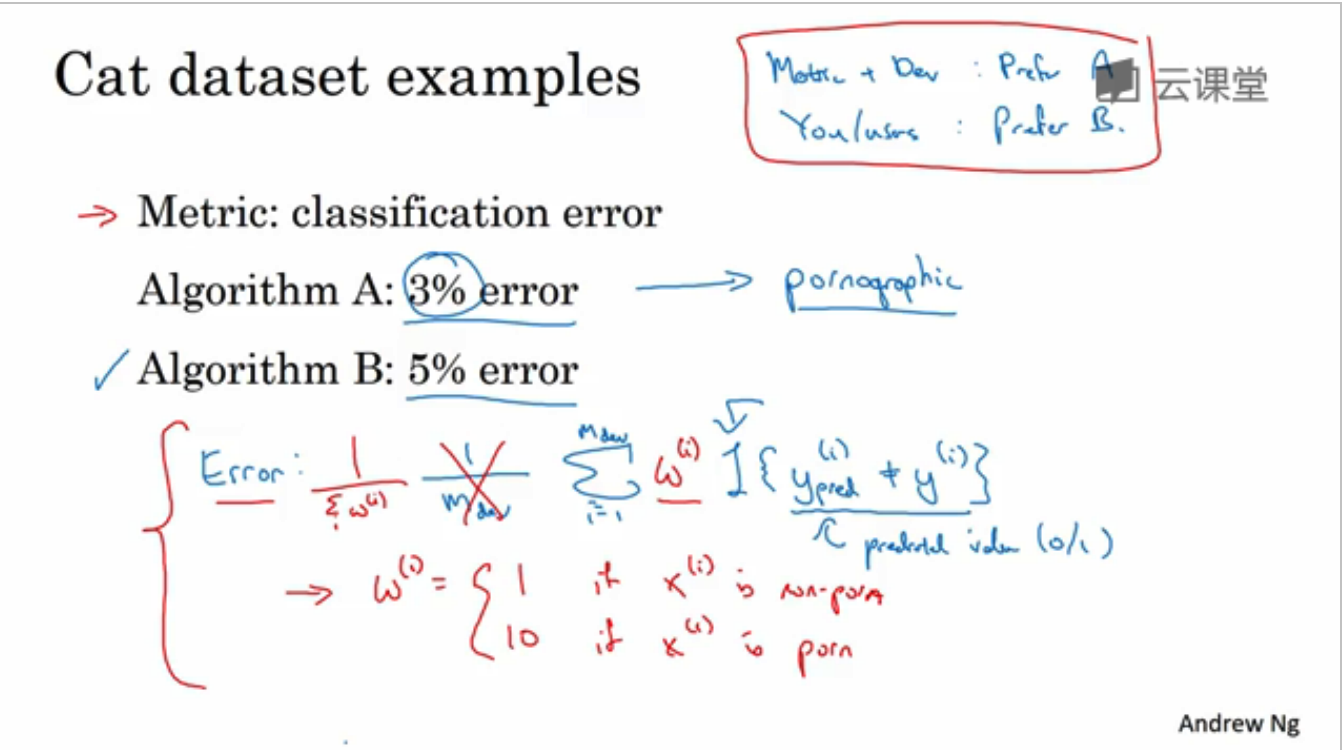 Cat dataset examples
Metric + Dev : Prefer A
You/users : Prefer B.
云课堂
→ Metric: classification error
Algorithm A: 3% error → pornographic
✓ Algorithm B: 5% error
Error: 1/Σᵢ w⁽ⁱ⁾ 1/m_dev Σᵢ₌₁^{m_dev} w⁽ⁱ⁾ 1{y_pred⁽ⁱ⁾ ≠ y⁽ⁱ⁾}
predicted value (0/1)
→ w⁽ⁱ⁾ = { 1 if x⁽ⁱ⁾ is non-porn
10 if x⁽ⁱ⁾ is porn
Andrew Ng